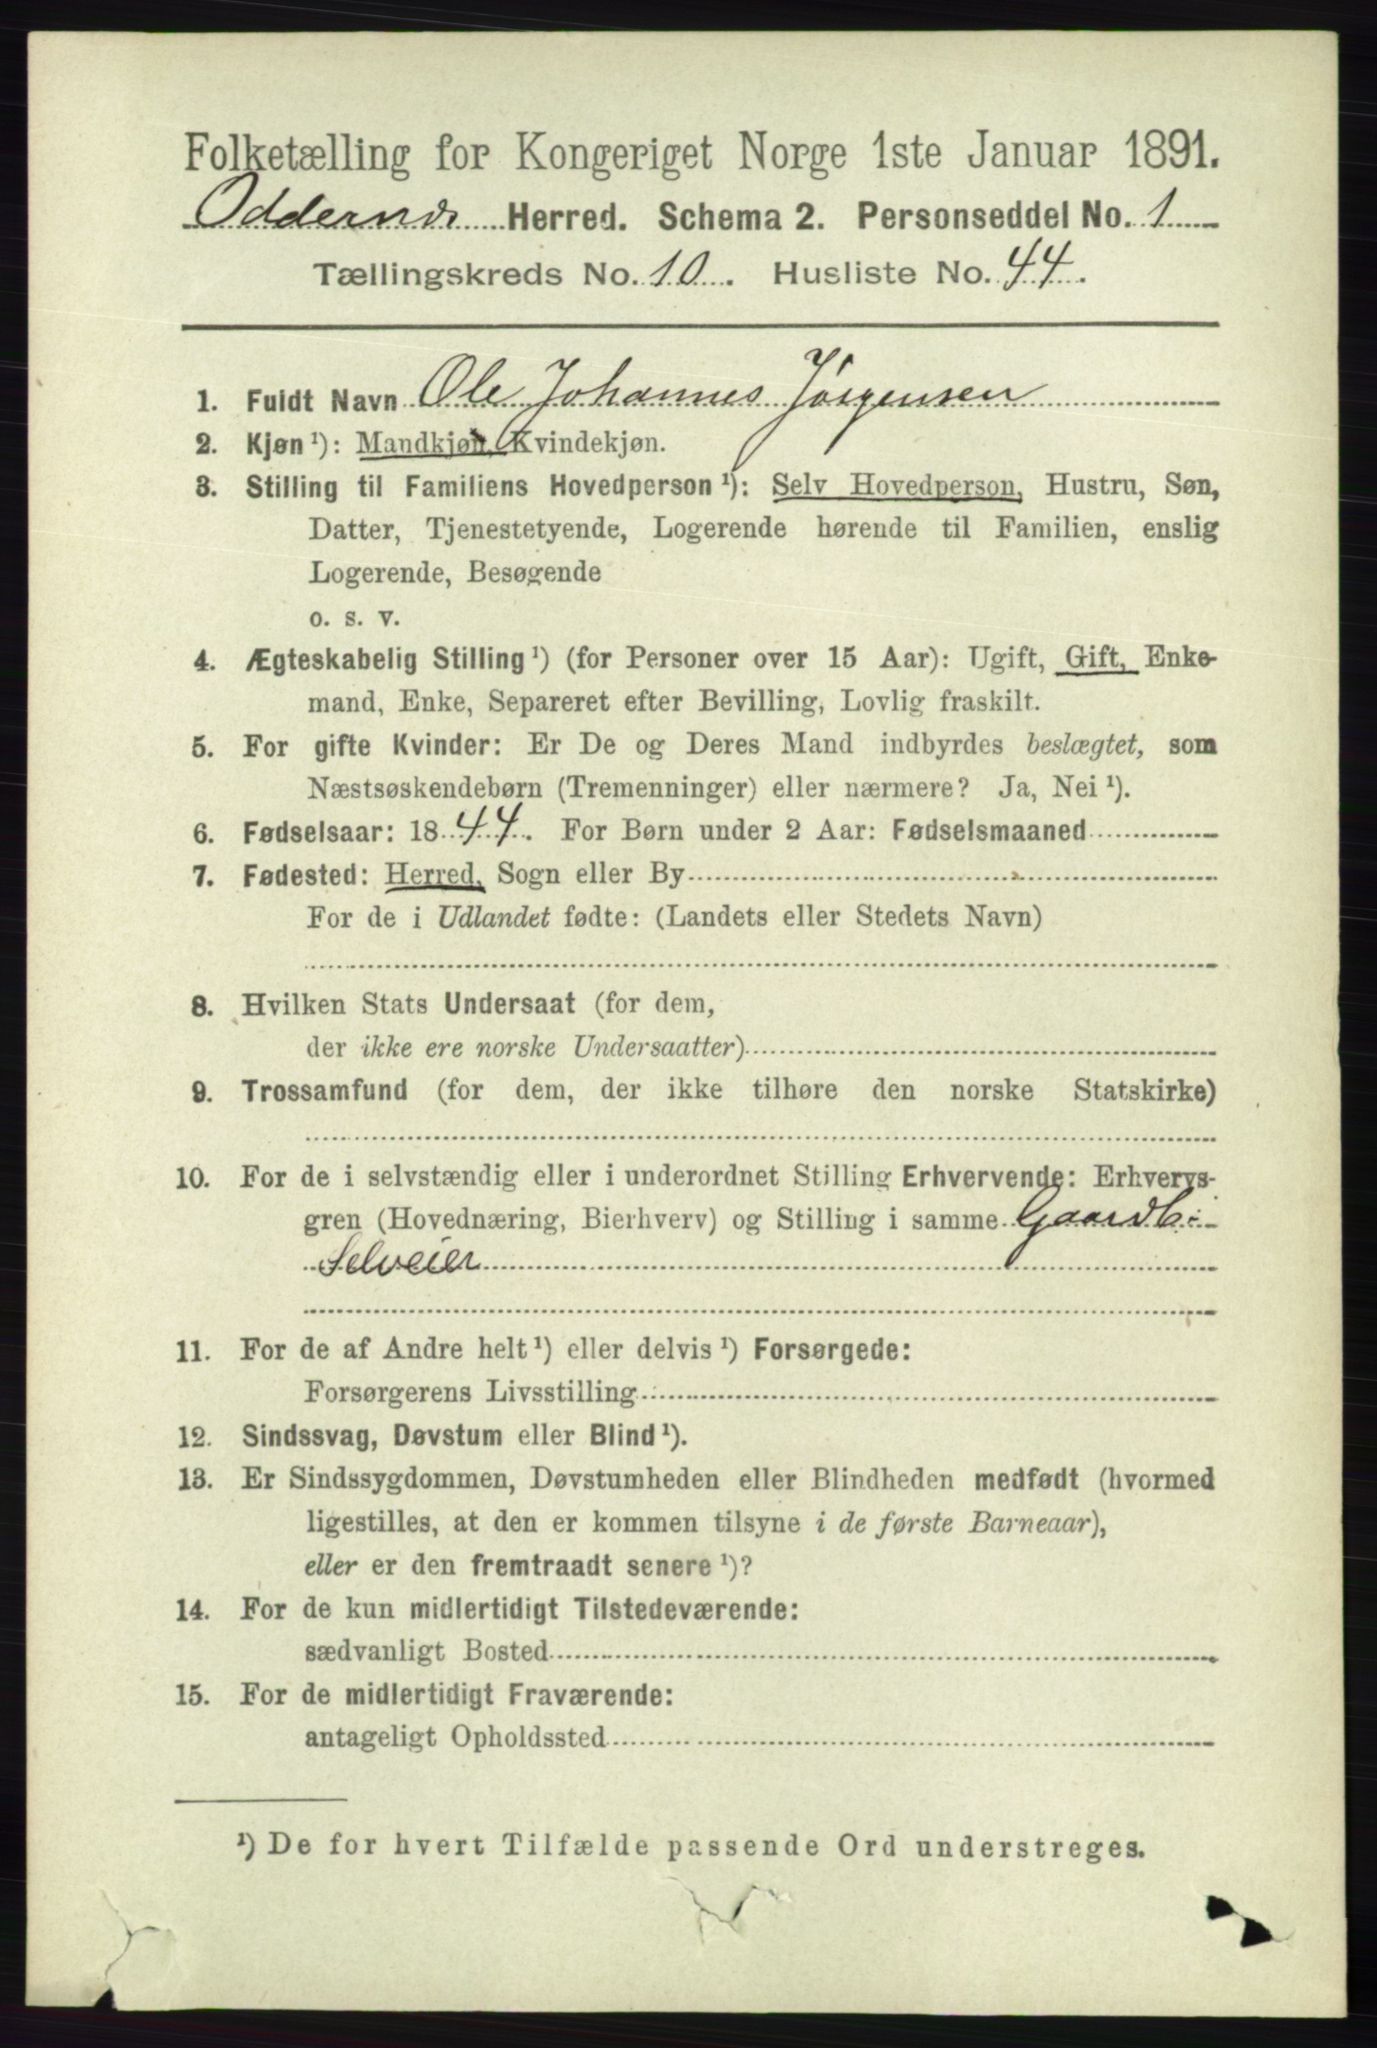 Folketælling for Kongeriget Norge 1ste Januar 1891.
Oddernes Herred. Schema 2. Personseddel No. 1
Tællingskreds No. 10. Husliste No. 44.
1. Fuldt Navn Ole Johannes Jørgensen
2. Kjøn ¹): Mandkjøn, Kvindekjøn.
3. Stilling til Familiens Hovedperson ¹): Selv Hovedperson, Hustru, Søn,
Datter, Tjenestetyende, Logerende hørende til Familien, enslig
Logerende, Besøgende
o. s. v.
4. Ægteskabelig Stilling ¹) (for Personer over 15 Aar): Ugift, Gift, Enke-
mand, Enke, Separeret efter Bevilling, Lovlig fraskilt.
5. For gifte Kvinder: Er De og Deres Mand indbyrdes beslægtet, som
Næstsøskendebørn (Tremenninger) eller nærmere? Ja, Nei ¹).
6. Fødselsaar: 1844. For Børn under 2 Aar: Fødselsmaaned
7. Fødested: Herred, Sogn eller By
For de i Udlandet fødte: (Landets eller Stedets Navn)
8. Hvilken Stats Undersaat (for dem,
der ikke ere norske Undersaatter)
9. Trossamfund (for dem, der ikke tilhøre den norske Statskirke)
10. For de i selvstændig eller i underordnet Stilling Erhvervende: Erhvervs-
gren (Hovednæring, Bierhverv) og Stilling i samme Gaardb:
Selveier
11. For de af Andre helt ¹) eller delvis ¹) Forsørgede:
Forsørgerens Livsstilling
12. Sindssvag, Døvstum eller Blind ¹).
13. Er Sindssygdommen, Døvstumheden eller Blindheden medfødt (hvormed
ligestilles, at den er kommen tilsyne i de første Barneaar),
eller er den fremtraadt senere ¹)?
14. For de kun midlertidigt Tilstedeværende:
sædvanligt Bosted
15. For de midlertidigt Fraværende:
antageligt Opholdssted
¹) De for hvert Tilfælde passende Ord understreges.